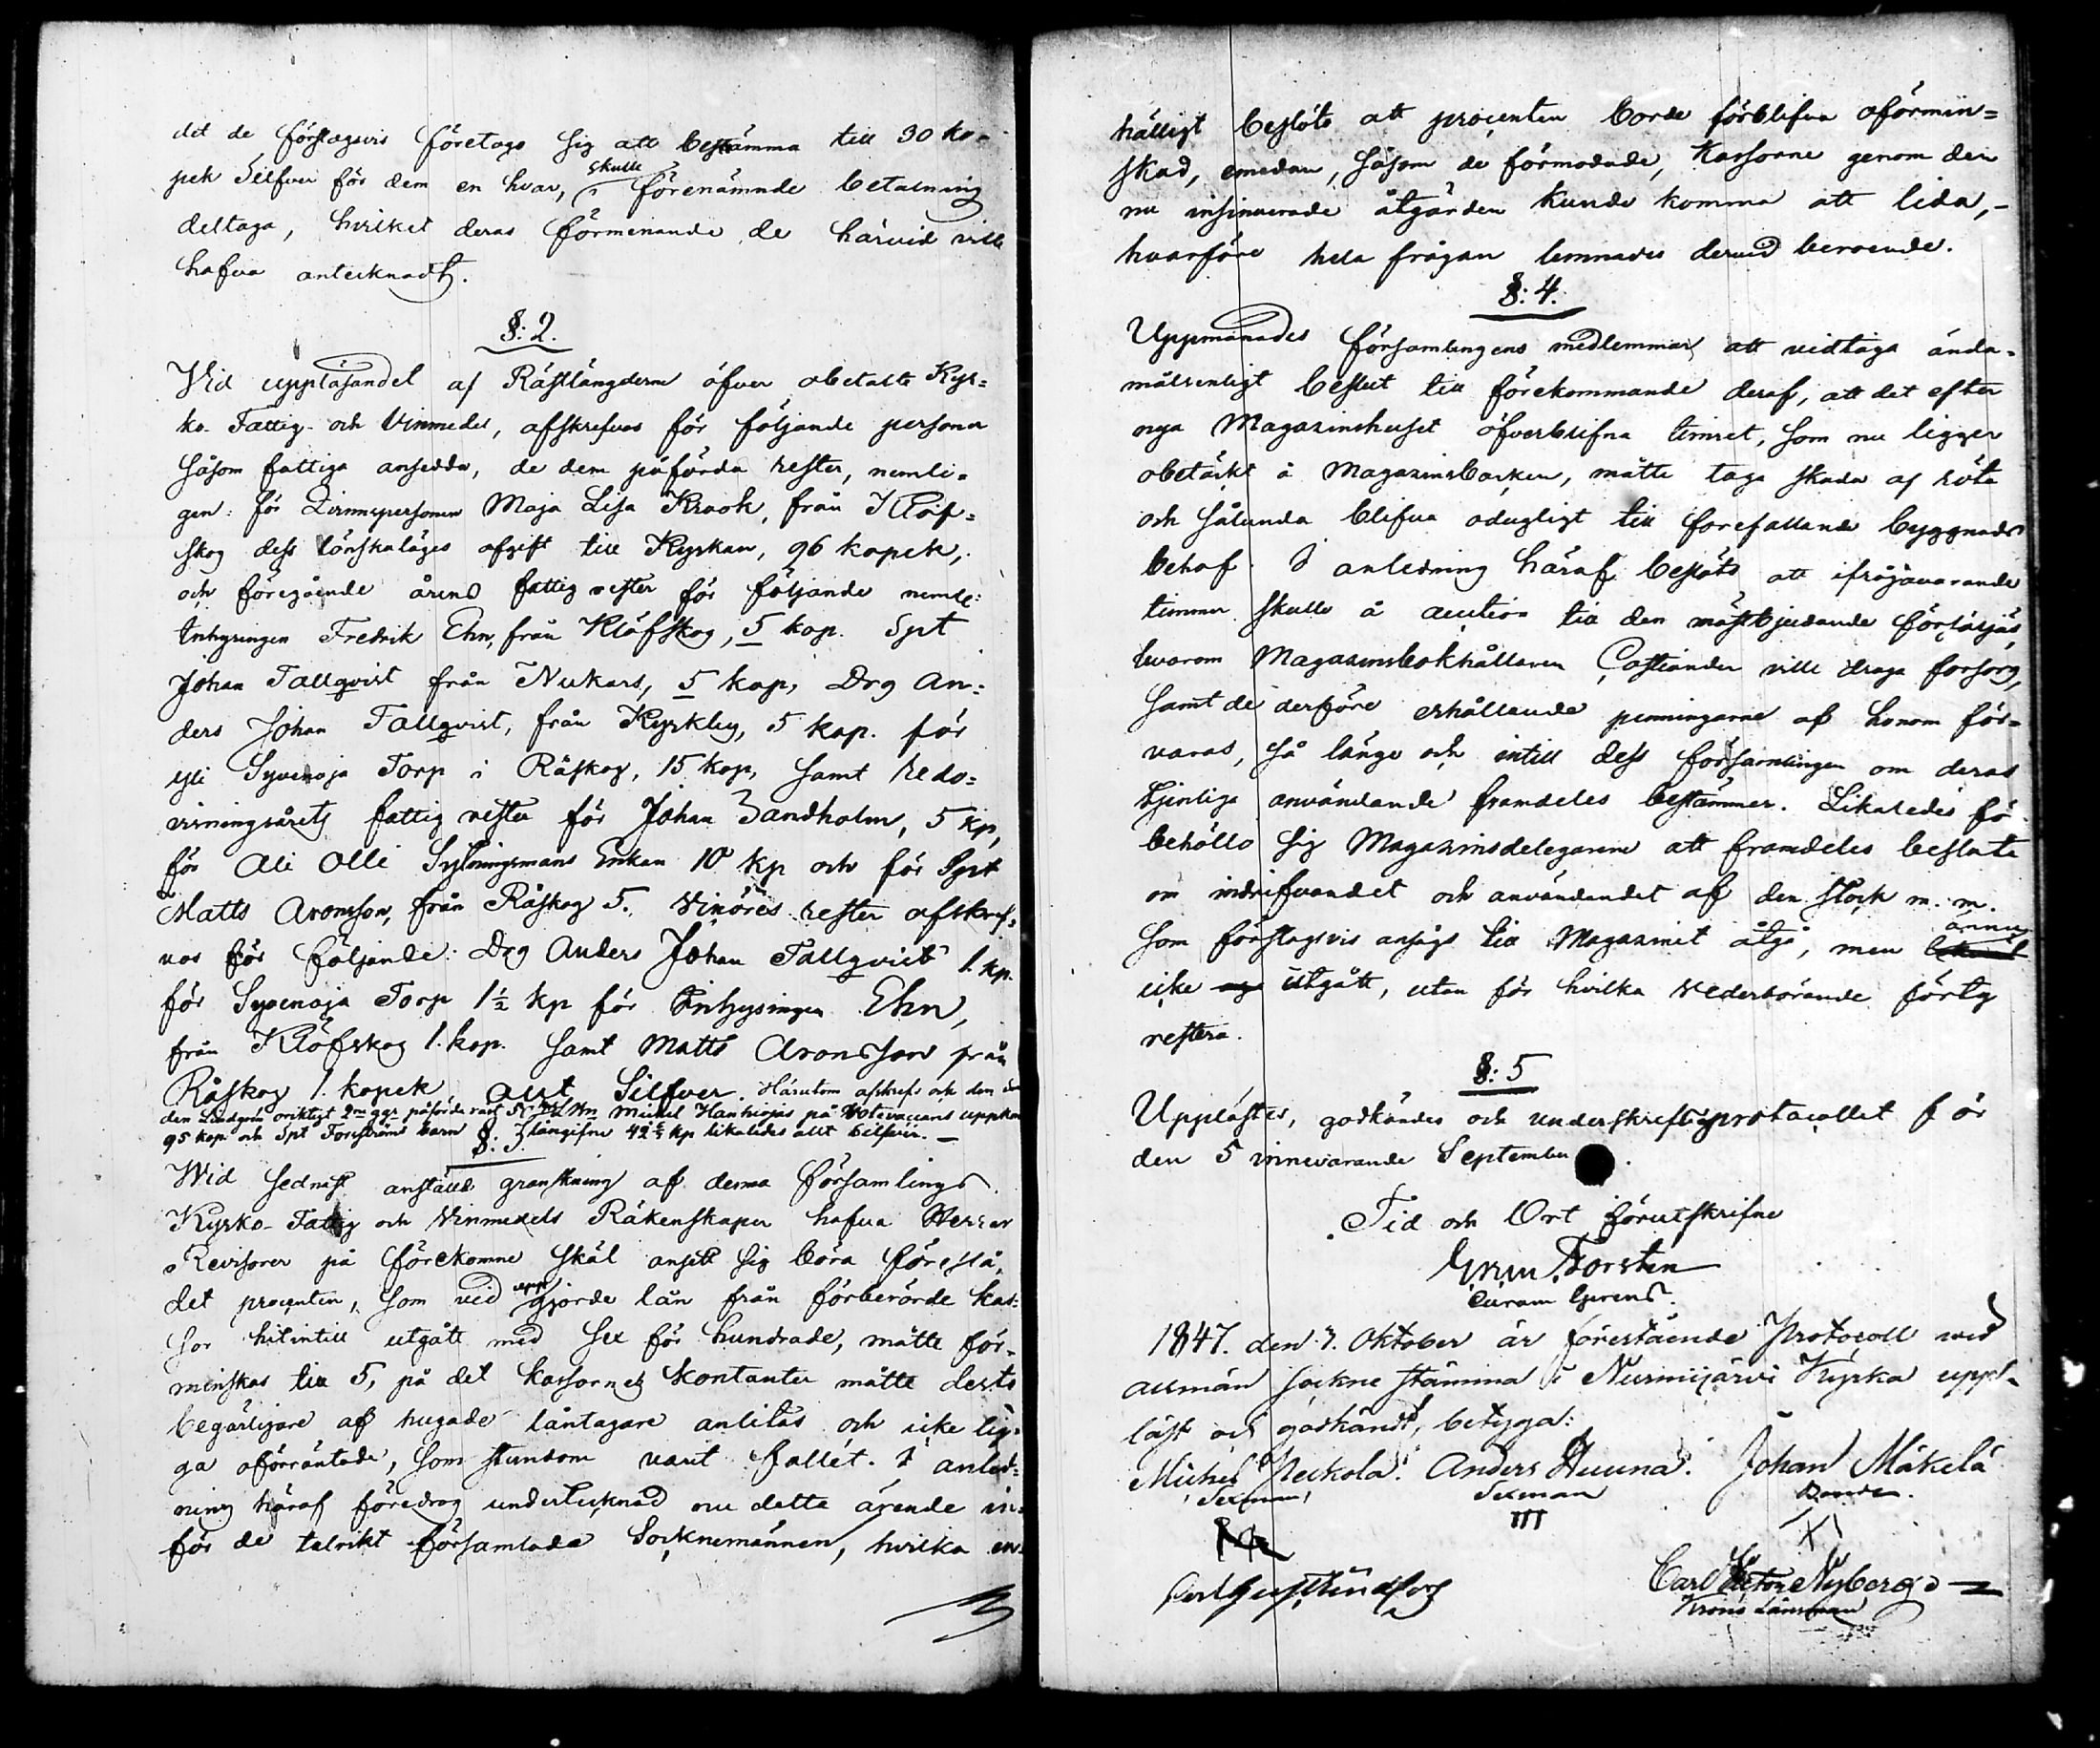 det de förslagsvis företogo sig att bestämma till 30 ko-
pek Silfver för dem en hvar, skulle i förenämnde betalning
deltaga, hvilket deras förmenande de härvid ville
hafva antecknadt.
§: 2.
Vid uppläsandet af Rästlängderne öfver obetalte Kyr-
ko- Fattig- och Vinmedel, afskrefvos för följande personer
såsom fattiga ansedda, de dem påförda rester, nemli-
gen: för Qvinnspersonen Maja Lisa Krook, från Klöf-
skog dess lönskaläges afgift till Kyrkan, 96 kopek,
och föregående årens fattig rester för följande neml:
Inhysingen Fredrik Ehn, från Klöfskog, 5 kop. Spt
Johan Tallqvist från Nukars, 5 kop, Drg An-
ders Johan Tallqvist, från Kyrkby, 5 kop. för
Syvenoja Torp i Råskog, 15 kop, samt redo-
visningsårets fattig rester för Johan Sandholm, 5 kp,
för Ali Olli Sytningsmans Enkan 10 kp och för Spt
Matts Aronsson, från Råskog 5. Vinöres rester afskref-
vos för följande: Drg Anders Johan Tallqvist 1 kp.
för Syvenoja Torp 1½ kp för Inhysingen Ehn,
från Klöfskog 1. kop. samt Matts Aronsson från
Råskog 1. kopek allt Silfver. Härutom afskrefs och den
den Lindgrén oriktigt 2ne ggr påförde rest Michel Hanhiojas på
95 kop och Spt Forsströms barn 42 kp likaledes allt Silfver. —
§. 3.
Wid sednast anställd granskning af denna församlings
Kyrko- Fattig och Vinmedels Räkenskaper hafva Herrar
Revisorer på förekomne skäl ansett sig böra föreslå,
det procenten, som vid uppgjorde lån från förberörde kas-
sor hitintill utgått med sex för hundrade, måtte för-
minskas till 5, på det kassornes kontanter måtte desto
begärligare af hugade låntagare anlitas och icke lig-
ga oförräntade, som stundom varit fallet. I anled-
ning häraf föredrog undertecknad nu detta ärende in-
för de talrikt församlade Socknemännen, hvilka en-
hälligt beslöto att procenten borde förblifva oförmin-
skad, emedan, såsom de förmodade, Kassorne genom den
nu insinuerade åtgärden kunde komma att lida, -
hvarföre hela frågan lemnades dervid beroende.
§: 4.
Uppmanades församlingens medlemmar att vidtaga ända-
målsenligt beslut till förekommande deraf, att det efter
nya Magasinshuset öfverblifna timret, som nu ligger
obetäckt å Magasinsbacken, måtte taga skada af röta
och sålunda blifva odugligt till förefallande byggnads
behof. I anledning häraf beslöts att ifrågavarande
timmer skulle å auction till den mästbjudande försäljas,
hvarom Magasinsbokhållaren Castiander ville draga försorg,
samt de derföre erhållande penningarne af honom för-
varas, så länge och intill dess församlingen om deras
tjenliga användande framdeles bestämmer. Likaledes för-
behöllo sig Magasinsdelegarne att framdeles besluta
om indrifvandet och användandet af den stock m. m.
som förslagsvis ansågs till Magasinet åtgå, men ännu
icke utgått, utan för hvilka vederbörande förty
restera.
§: 5
Upplästes, godkändes och underskrefs protocollet för
den 5 innevarande September.
Tid och Ort förutskrifne
Forsten
Curam Gerens.
1847. den 3. Oktober är förestående Protocoll wid
allmän sockne stämma i Nurmijärvi Kyrka upp-
läst och godkändt, betyga:
Michel Heikola. Anders Huuna. Johan Mäkelä
Sexman Sexman Bonde.
Carl Gust Lindfors Carl Anton Nyberg
Krono Länsman